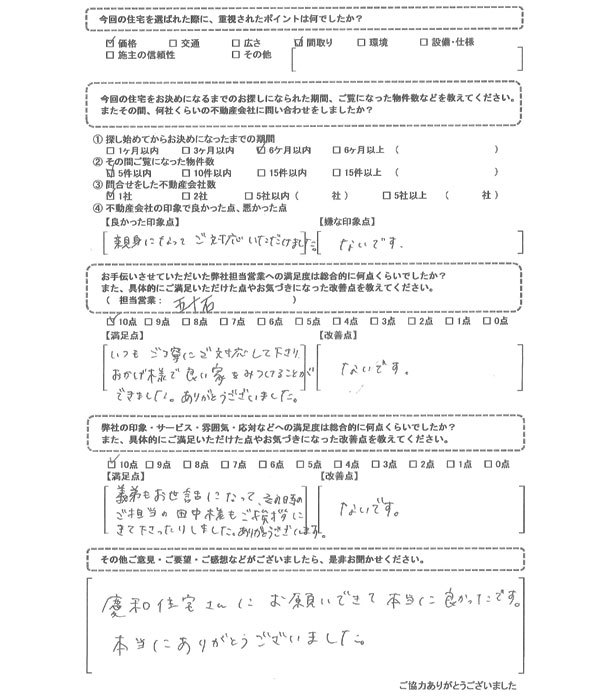 今回の住宅を選ばれた際に、重視されたポイントは何でしたか?
☑価格 □交通 □広さ ☑間取り □環境 □設備・仕様
□施主の信頼性 □その他
今回の住宅をお決めになるまでのお探しになられた期間、ご覧になった物件数などを教えてください。
またその間、何社くらいの不動産会社に問い合わせをしましたか?
① 探し始めてからお決めになったまでの期間
□1ヶ月以内 □3ヶ月以内 ☑6ケ月以内 □6ヶ月以上 ( )
② その間ご覧になった物件数
☑5件以内 □10件以内 □15件以内 □15件以上 ( )
③ 問合せをした不動産会社数
☑1社 □2社 □5社以内 ( 社 ) □5社以上 ( 社 )
④ 不動産会社の印象で良かった点、悪かった点
【良かった印象点】 【嫌な印象点】
親身になって ご対応いただけました。 ないです。
お手伝いさせていただいた弊社担当営業への満足度は総合的に何点くらいでしたか?
また、具体的にご満足いただけた点やお気づきになった改善点を教えてください。
( 担当営業: 五十石 )
☑10点 □9点 □8点 □7点 □6点 □5点 □4点 □3点 □2点 □1点 □0点
【満足点】 【改善点】
いつも ごつ寧にご対応して下さり、
おかげ様で良い家をみつけることが
できました。ありがとうございました。
ないです。
弊社の印象・サービス・雰囲気・応対などへの満足度は総合的に何点くらいでしたか?
また、具体的にご満足いただけた点やお気づきになった改善点を教えてください。
☑10点 □9点 □8点 □7点 □6点 □5点 □4点 □3点 □2点 □1点 □0点
【満足点】 【改善点】
義弟もお世話になって、
ご担当の田中様もご挨拶に
きて下さったりしました。ありがとうございます。
ないです。
その他ご意見・ご要望・ご感想などがございましたら、是非お聞かせください。
慶和住宅さんに お願いできて 本当に良かったです。
本当にありがとうございました。
ご協力ありがとうございました